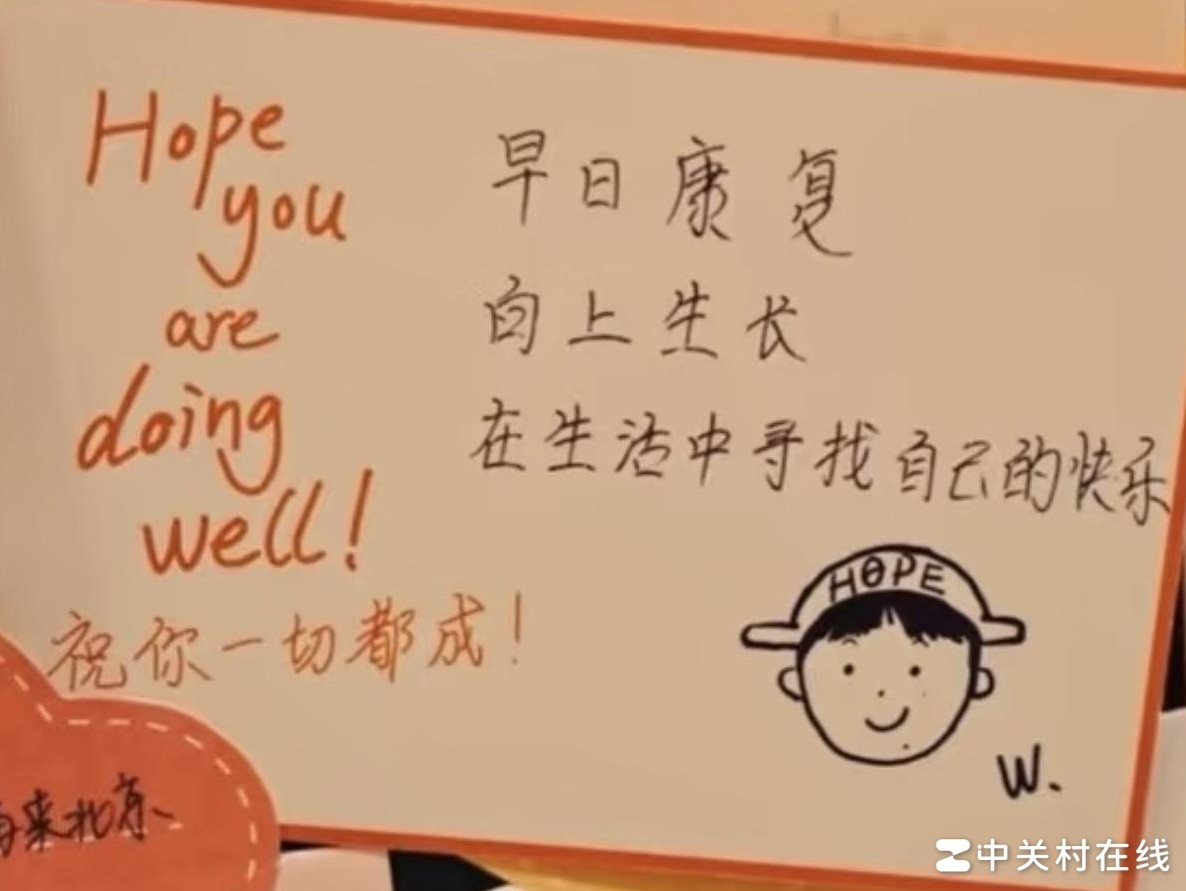 Hope
you
are
doing
well!
祝你一切都成！
早日康复
向上生长
在生活中寻找自己的快乐
HOPE
W.
来北京
中关村在线